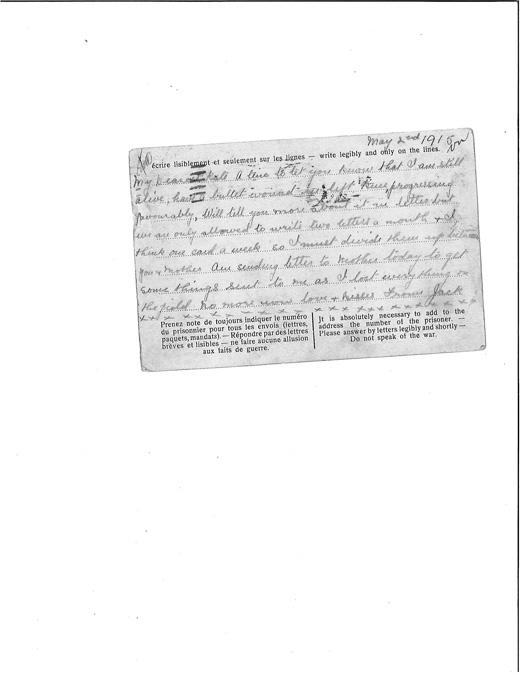 May 2nd 1915
Écrire lisiblement et seulement sur les lignes — write legibly and only on the lines.
My Dearest Kate A line to let you know that I am still
alive, have bullet wound left Knee progressing
favourably, Will tell you more about it in letter but
we are only allowed to write two letters a month & I
think one card a week so I must divide them up between
you & Mother Am sending letter to Mother today to get
some things sent to me as I lost everything on
the field no more now love & kisses From Jack
x x x x x x x x x x x x x x x x
Prenez note de toujours indiquer le numéro
du prisonnier pour tous les envois (lettres,
paquets, mandats). — Répondre par des lettres
brèves et lisibles — ne faire aucune allusion
aux faits de guerre.
It is absolutely necessary to add to the
address the number of the prisoner. —
Please answer by letters legibly and shortly —
Do not speak of the war.